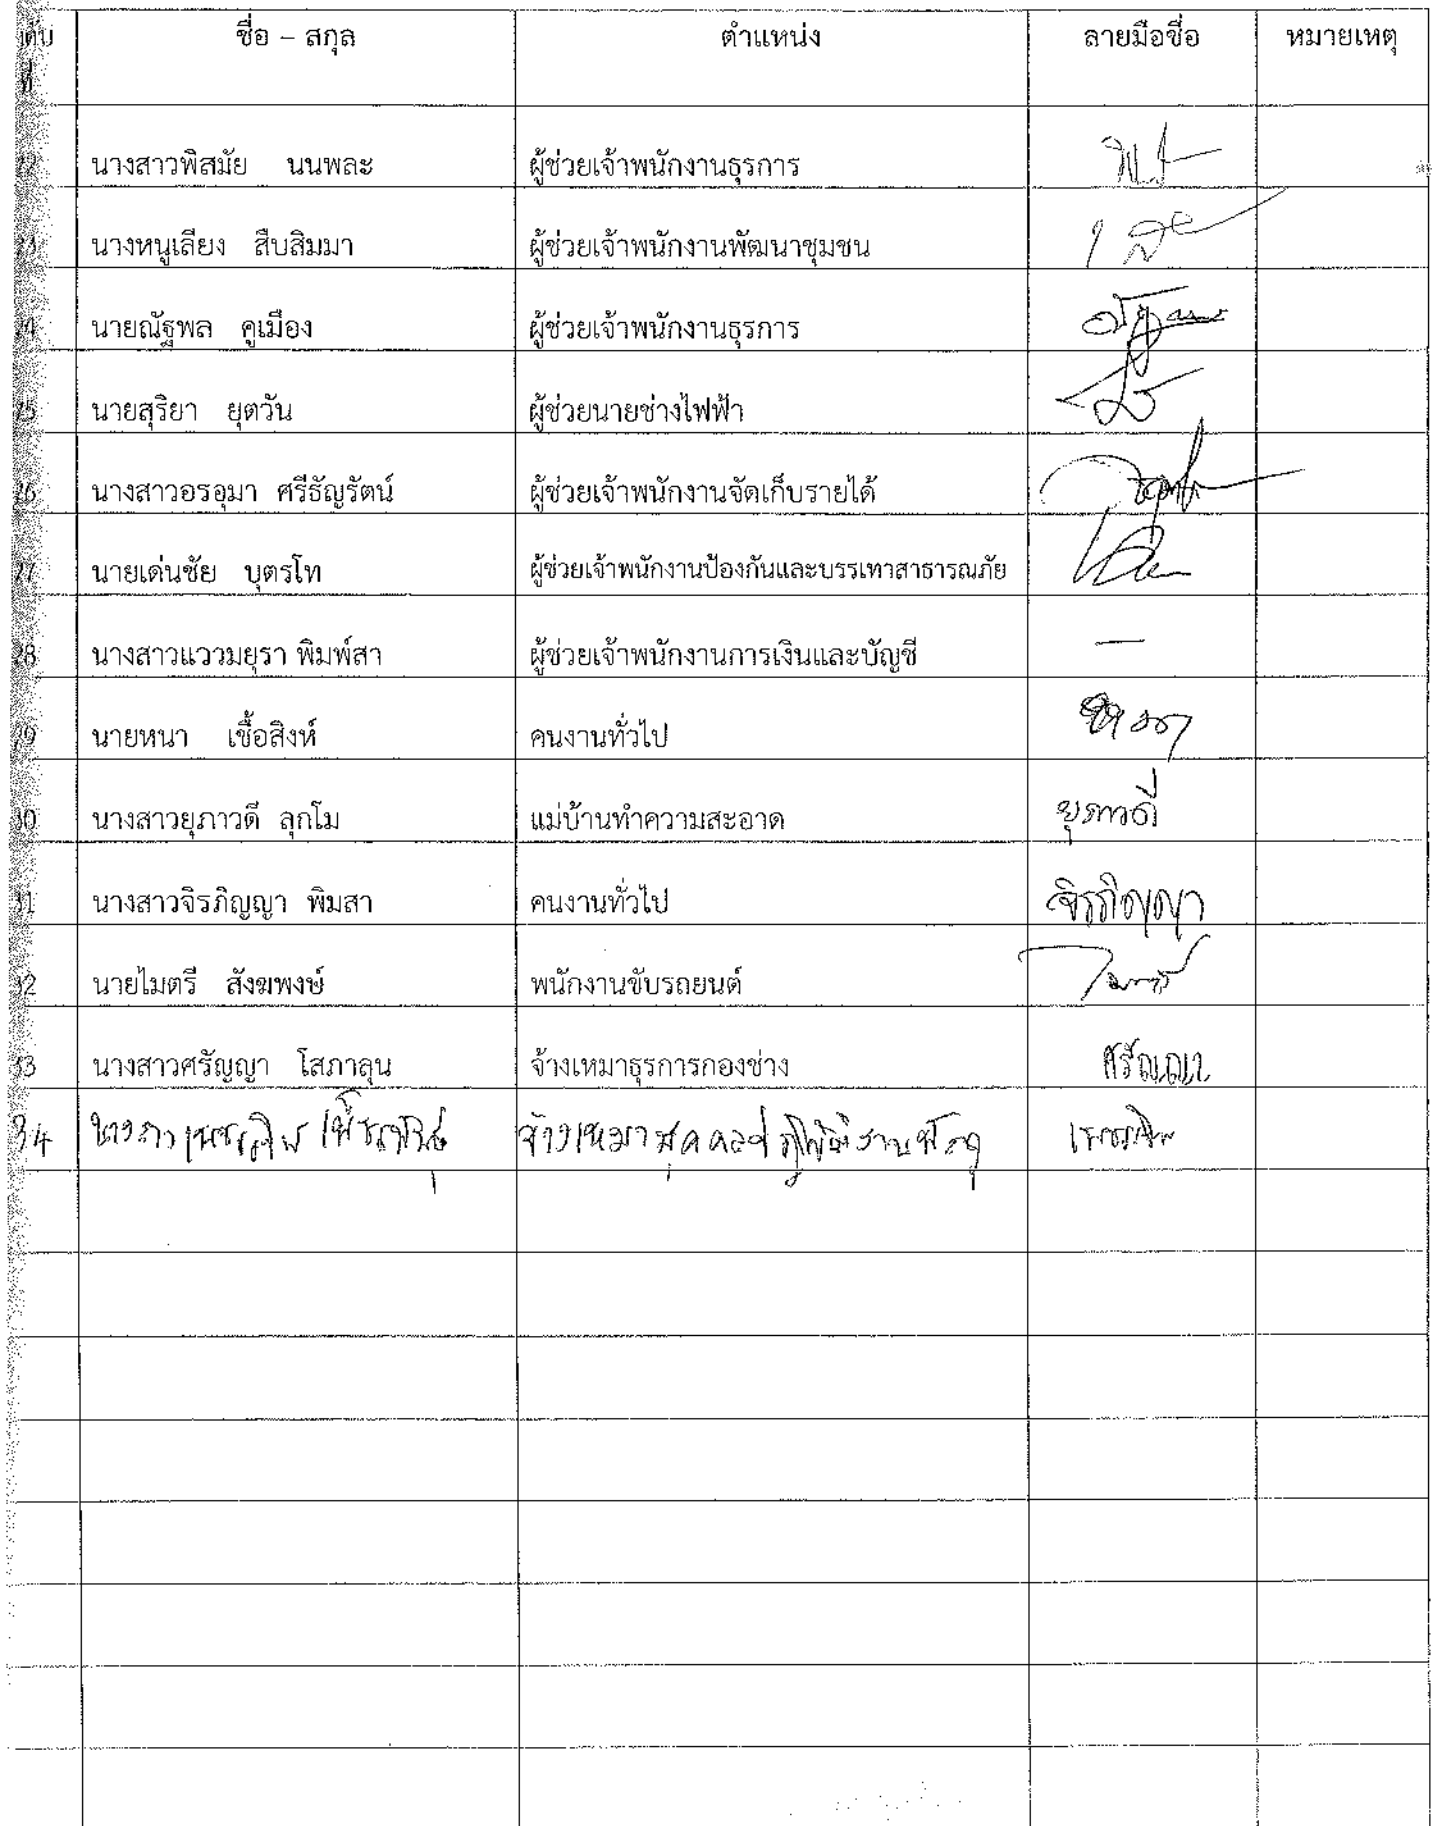 ชื่อ – สกุล ตำแหน่ง ลายมือชื่อ หมายเหตุ
ที่
นางสาวพิสมัย นนพละ ผู้ช่วยเจ้าพนักงานธุรการ
นางหนูเลียง สืบสิมมา ผู้ช่วยเจ้าพนักงานพัฒนาชุมชน
24 นายณัฐพล คูเมือง ผู้ช่วยเจ้าพนักงานธุรการ
25 นายสุริยา ยุตวัน ผู้ช่วยนายช่างไฟฟ้า
26 นางสาวอรอุมา ศรีธัญรัตน์ ผู้ช่วยเจ้าพนักงานจัดเก็บรายได้
27 นายเด่นชัย บุตรโท ผู้ช่วยเจ้าพนักงานป้องกันและบรรเทาสาธารณภัย
28 นางสาวแววมยุรา พิมพ์สา ผู้ช่วยเจ้าพนักงานการเงินและบัญชี –
29 นายหนา เชื้อสิงห์ คนงานทั่วไป หนา
30 นางสาวยุภาวดี ลุกโม แม่บ้านทำความสะอาด ยุภาวดี
31 นางสาวจิรภิญญา พิมสา คนงานทั่วไป จิรภิญญา
32 นายไมตรี สังฆพงษ์ พนักงานขับรถยนต์ ไมตรี
33 นางสาวศรัญญา โสภาลุน จ้างเหมาธุรการกองช่าง ศรัญญา
34 นางสาว จ้างเหมาบุคคลปฏิบัติงานพัสดุ